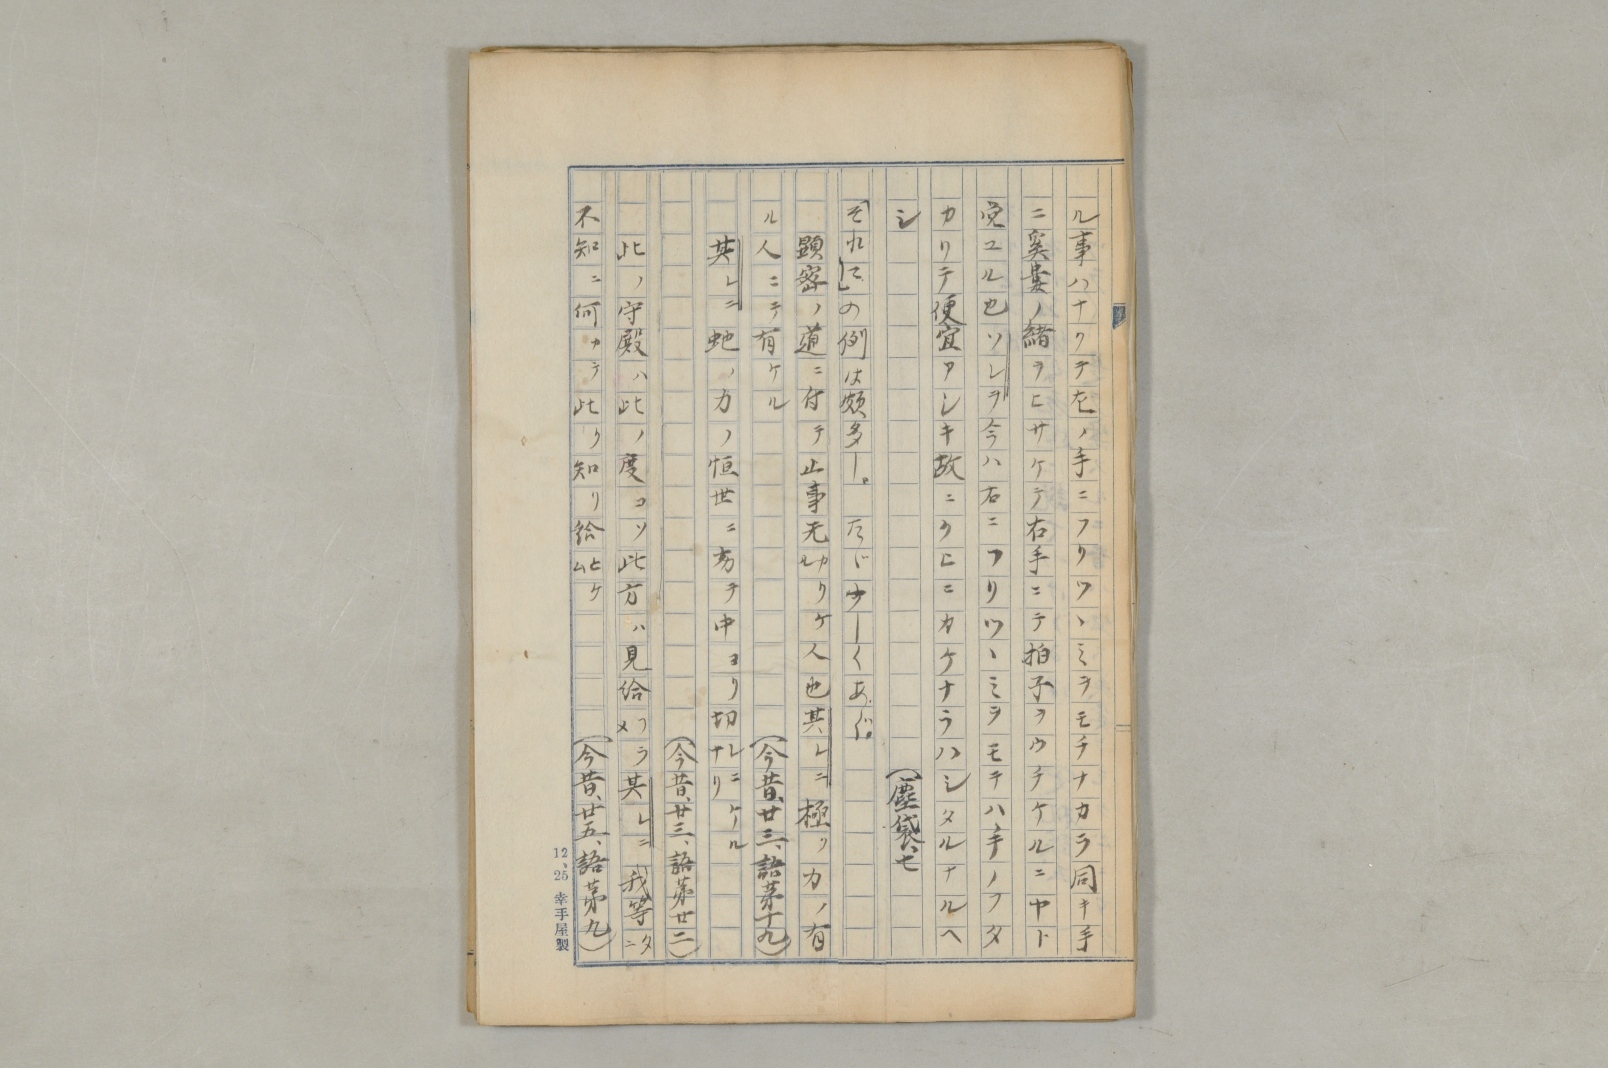 ル事ハナクテ左ノ手ニフリツヽミヲモチナカラ同キ手
ニ奚婁ノ緒ヲヒサケテ右手ニテ拍子ヲウチケルニヤト
覚ユル也ソレヲ今ハ右ニフリツヽミヲモテハ手ノフタ
カリテ便宜アシキ故ニクヒニカケナラハシタルナルヘ
シ
(塵袋、七
「それに」の例は頗多し。たゞ少しくあぐ。
顕密ノ道ニ付テ止事无カリケ人也其レニ極ク力ノ有
ル人ニテ有ケル
(今昔、廿三、語第十九)
其レニ蛇ノ力ノ恒世ニ劣テ中ヨリ切レニケルナリ
(今昔、廿三、語第廿二)
此ノ守殿ハ此ノ度コソ此方ハ見給フラメ其レニ我等タニ
不知ニ何カテ此ク知リ給ヒケム
(今昔、廿五、語第九)
12、25 幸手屋製